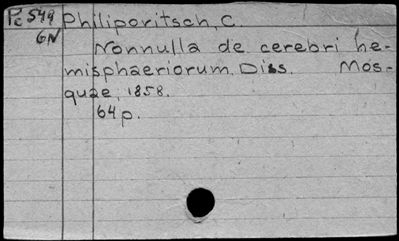 Pc 549 Philiporitsch, C.
GN Nonnulla de cerebri he-
misphaeriorum. Diss. Mos-
quae, 1858.
64 p.